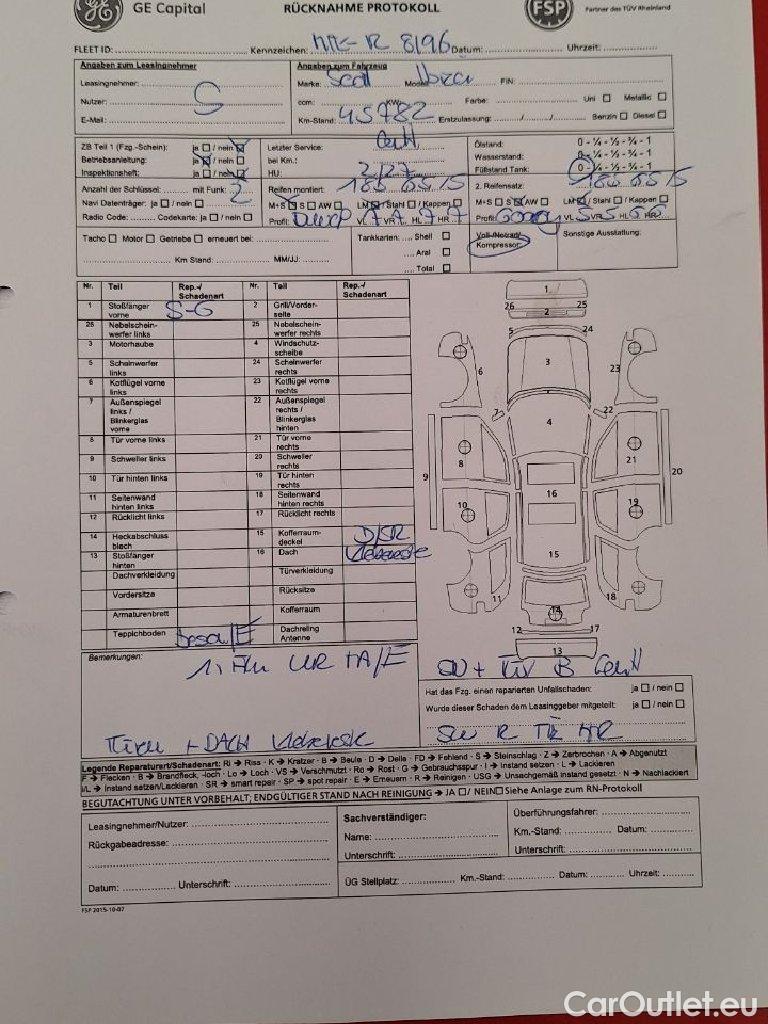 GE Capital
RÜCKNAHME PROTOKOLL
FSP
Partner des TÜV Rheinland
FLEET ID: Kennzeichen: R 8196 Datum: Uhrzeit:
Angaben zum Leasingnehmer
Angaben zum Fahrzeug
Leasingnehmer: Marke: Seat Modell: Ibiza FIN:
Nutzer: ccm: KW: Farbe: Uni Metallic
E-Mail: Km-Stand: 45782 Erstzulassung: / / Benzin Diesel
ZB Teil 1 (Fzg.-Schein): ja / nein
Betriebsanleitung: ja / nein
Inspektionsheft: ja / nein
Letzter Service:
bei Km.:
HU: 2/27
Ölstand: 0 - ¼ - ½ - ¾ - 1
Wasserstand: 0 - ¼ - ½ - ¾ - 1
Füllstand Tank: 0 - ¼ - ½ - ¾ - 1
Anzahl der Schlüssel: mit Funk: 2
Navi Datenträger: ja / nein
Radio Code: Codekarte: ja / nein
Reifen montiert: 185 65 15
M+S S AW LM / Stahl / Kappen
Profil: VL 7 VR 7 HL 7 HR 7
2. Reifensatz: 185 65 15
M+S S AW LM / Stahl / Kappen
Profil: VL 5 VR 5 HL 5 HR 5
Tacho Motor Getriebe erneuert bei:
Km Stand: MM/JJ:
Tankkarten: Shell
Aral
Total
Voll-/Notrad/
Kompressor
Sonstige Ausstattung:
Nr. Teil Rep.-/ Schadenart Nr. Teil Rep.-/ Schadenart
1 Stoßfänger vorne S-G 2 Grill/Vorderseite
26 Nebelscheinwerfer links 25 Nebelscheinwerfer rechts
3 Motorhaube 4 Windschutzscheibe
5 Scheinwerfer links 24 Scheinwerfer rechts
6 Kotflügel vorne links 23 Kotflügel vorne rechts
7 Außenspiegel links / Blinkerglas vorne 22 Außenspiegel rechts / Blinkerglas hinten
8 Tür vorne links 21 Tür vorne rechts
9 Schweller links 20 Schweller rechts
10 Tür hinten links 19 Tür hinten rechts
11 Seitenwand hinten links 18 Seitenwand hinten rechts
12 Rücklicht links 17 Rücklicht rechts
14 Heckabschlussblech 15 Kofferraumdeckel D/SR
13 Stoßfänger hinten 16 Dach Klebereste
Dachverkleidung Türverkleidung
Vordersitze Rücksitze
Armaturenbrett Kofferraum
Teppichboden Dachreling Antenne
Bemerkungen:
Türen + DACH Klebereste
Hat das Fzg. einen reparierten Unfallschaden: ja / nein
Wurde dieser Schaden dem Leasinggeber mitgeteilt: ja / nein
Legende Reparaturart/Schadenart: RI → Riss - K → Kratzer - B → Beule - D → Delle - FD → Fehlend - S → Steinschlag - Z → Zerbrochen - A → Abgenutzt
F → Flecken - B → Brandfleck, -loch - Lo → Loch - VS → Verschmutzt - Ro → Rost - G → Gebrauchsspur - I → Instand setzen - L → Lackieren
I/L → Instand setzen/Lackieren - SR → smart repair - SP → spot repair - E → Erneuern - R → Reinigen - USG → Unsachgemäß instand gesetzt - N → Nachlackiert
BEGUTACHTUNG UNTER VORBEHALT; ENDGÜLTIGER STAND NACH REINIGUNG → JA / NEIN Siehe Anlage zum RN-Protokoll
Leasingnehmer/Nutzer:
Rückgabeadresse:
Datum: Unterschrift:
Sachverständiger:
Name:
Unterschrift:
Überführungsfahrer:
Km.-Stand: Datum:
Unterschrift:
ÜG Stellplatz: Km.-Stand: Datum: Uhrzeit:
FSP 2015-10-07
CarOutlet.eu